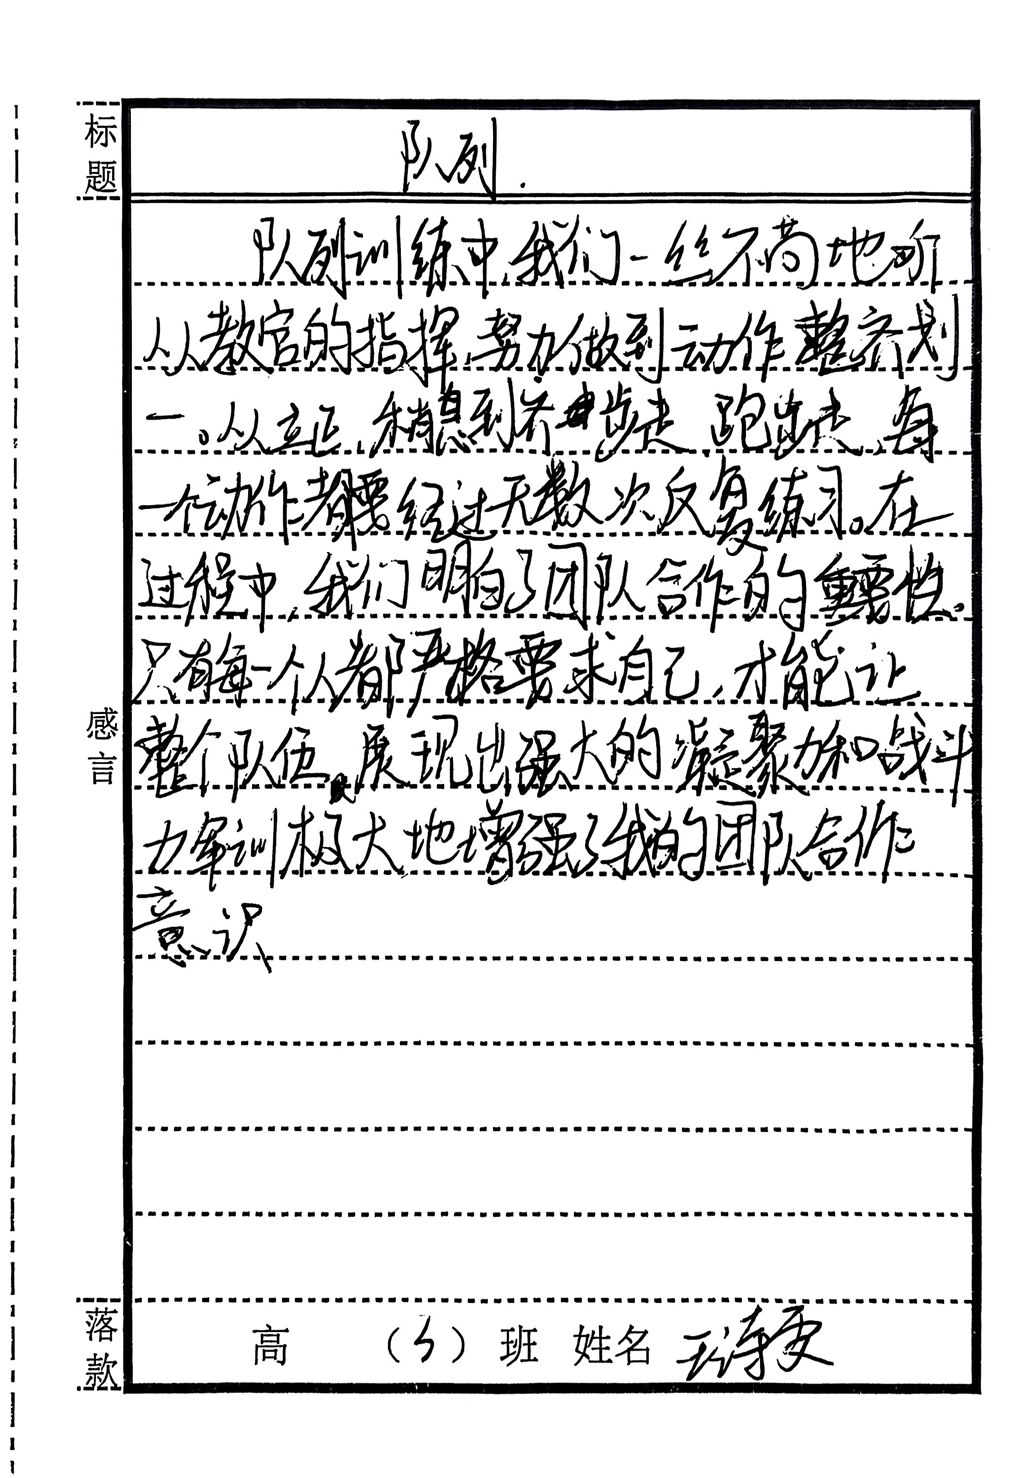 标题
队列.
队列训练中,我们一丝不苟地听
从教官的指挥,努力做到动作整齐划
一。从立正,稍息到齐步走,跑步走,每
一个动作都要经过无数次反复练习。在
过程中,我们明白了团队合作的重要性。
只有每一个人都严格要求自己,才能让
整个队伍展现出强大的凝聚力和战斗
力军训极大地增强了我的团队合作
意识
感言
落款
高 ( ) 班 姓名 王诗